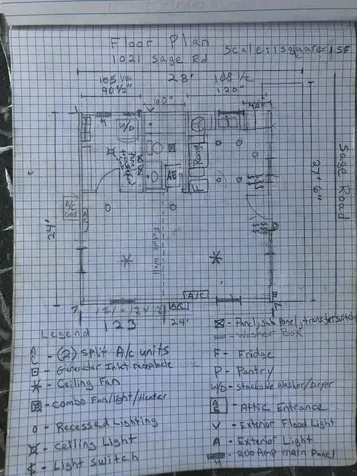 Floor Plan
1021 Sage Rd
Scale: 1 Square = .5F
28'
105 1/2
90 1/2"
108 1/2
120"
60"
W/D
AE
F
27' 6"
Sage Road
24'
A/C
123
24'
Legend
A/C - (2) split A/c units
Generator Inlet receptacle
Ceiling Fan
Combo Fan/light/Heater
Recessed Lighting
Ceiling Light
Light Switch
Panel, Sub Panel, transfer switch
Washer Box
F - Fridge
P - Pantry
W/D - Stackable Washer/Dryer
AE - Attic Entrance
V - Exterior Flood Light
A - Exterior Light
200 Amp main Panel